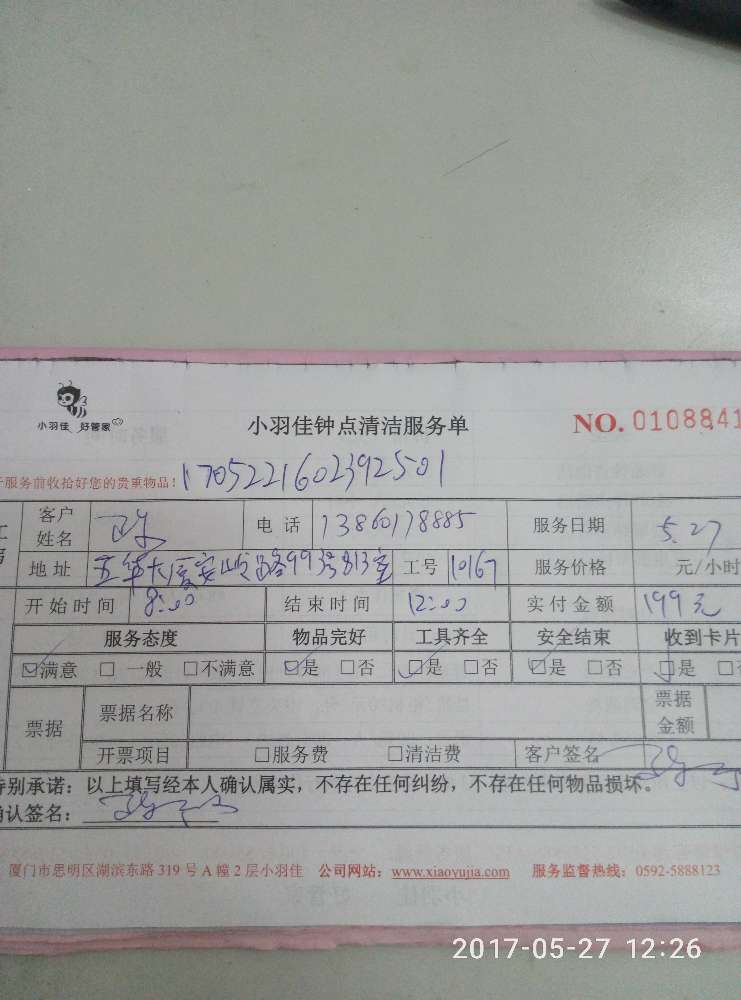 小羽佳 好管家
小羽佳钟点清洁服务单
NO. 0108841
服务前收拾好您的贵重物品！
1705221602392501
客户姓名 电话 13860178885 服务日期 5.27
地址 五华大厦安岭路993号813室 工号 10167 服务价格 元/小时
开始时间 8:00 结束时间 12:00 实付金额 199元
服务态度 物品完好 工具齐全 安全结束 收到卡片
☑满意 □一般 □不满意 ☑是 □否 ☑是 □否 ☑是 □否 ☑是 □
票据 票据名称 票据金额
开票项目 □服务费 □清洁费 客户签名
特别承诺：以上填写经本人确认属实，不存在任何纠纷，不存在任何物品损坏。
确认签名：
厦门市思明区湖滨东路 319 号 A 幢 2 层小羽佳 公司网站：www.xiaoyujia.com 服务监督热线：0592-5888123
2017-05-27 12:26